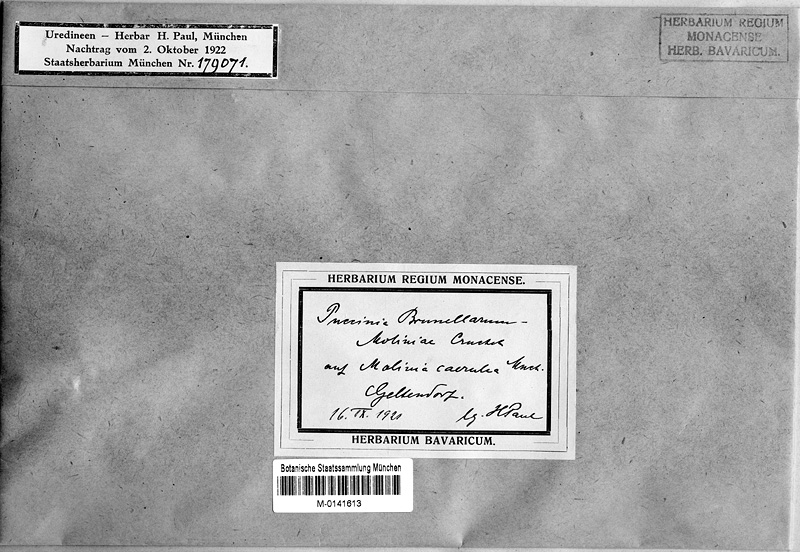 Uredineen – Herbar H. Paul, München
Nachtrag vom 2. Oktober 1922
Staatsherbarium München Nr. 179071.
HERBARIUM REGIUM
MONACENSE
HERB. BAVARICUM.
HERBARIUM REGIUM MONACENSE.
Puccinia Brunellarum-
Moliniae Cruchet
auf Molinia caerulea Mnch.
Geltendorf.
16. IX. 1921 lg. HPaul
HERBARIUM BAVARICUM.
Botanische Staatssammlung München
M-0141613